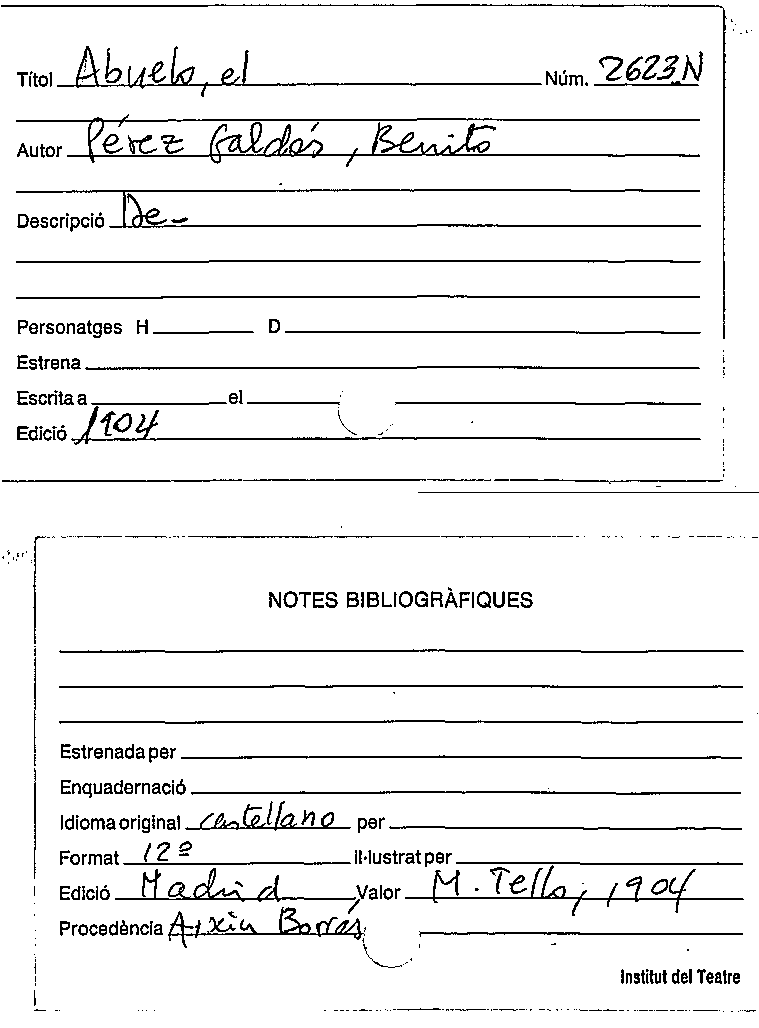 Títol Abuelo, el Núm. 2623N
Autor Pérez Galdós, Benito
Descripció De-
Personatges H D
Estrena
Escrita a el
Edició 1904
NOTES BIBLIOGRÀFIQUES
Estrenada per
Enquadernació
Idioma original castellano per
Format 12º Il·lustrat per
Edició Madrid Valor M. Tello, 1904
Procedència Arxiu Borrás
Institut del Teatre